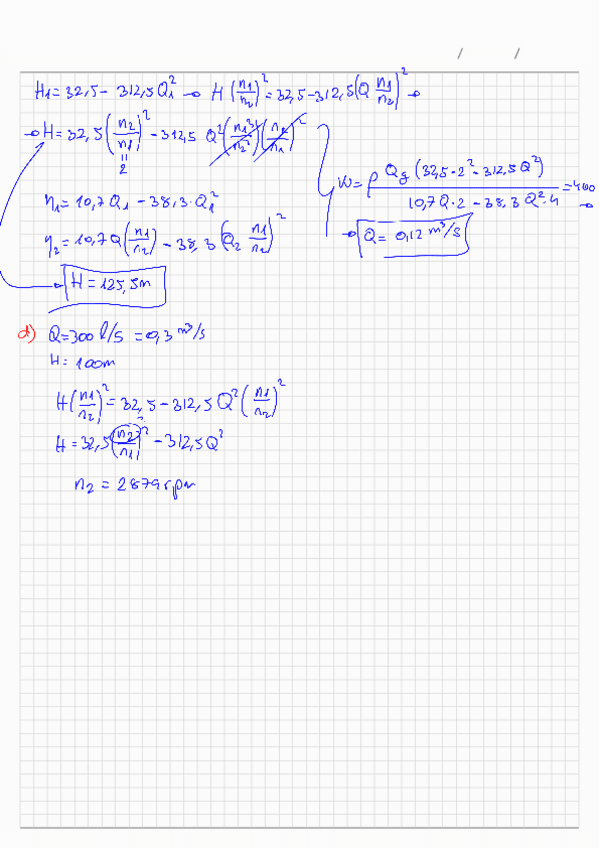 / /
H1 = 32,5 - 312,5 Q1² → H (n1/n2)² = 32,5 - 312,5 (Q n1/n2)² →
→ H = 32,5 (n2/n1)² - 312,5 Q² (n1²/n2²) (n2/n1)²
" 2
η1 = 10,7 Q1 - 38,3 · Q1²
η2 = 10,7 Q (n1/n2) - 38,3 (Q2 n1/n2)²
H = 125,5m
W = ρ Q g (32,5 · 2² - 312,5 Q²) / (10,7 Q · 2 - 38,3 Q² · 4) = 400 →
→ Q = 0,12 m³/s
d) Q = 300 l/s = 0,3 m³/s
H = 100m
H (n1/n2)² = 32,5 - 312,5 Q² (n1/n2)²
H = 32,5 (n2/n1)² - 312,5 Q²
n2 = 2879 rpm